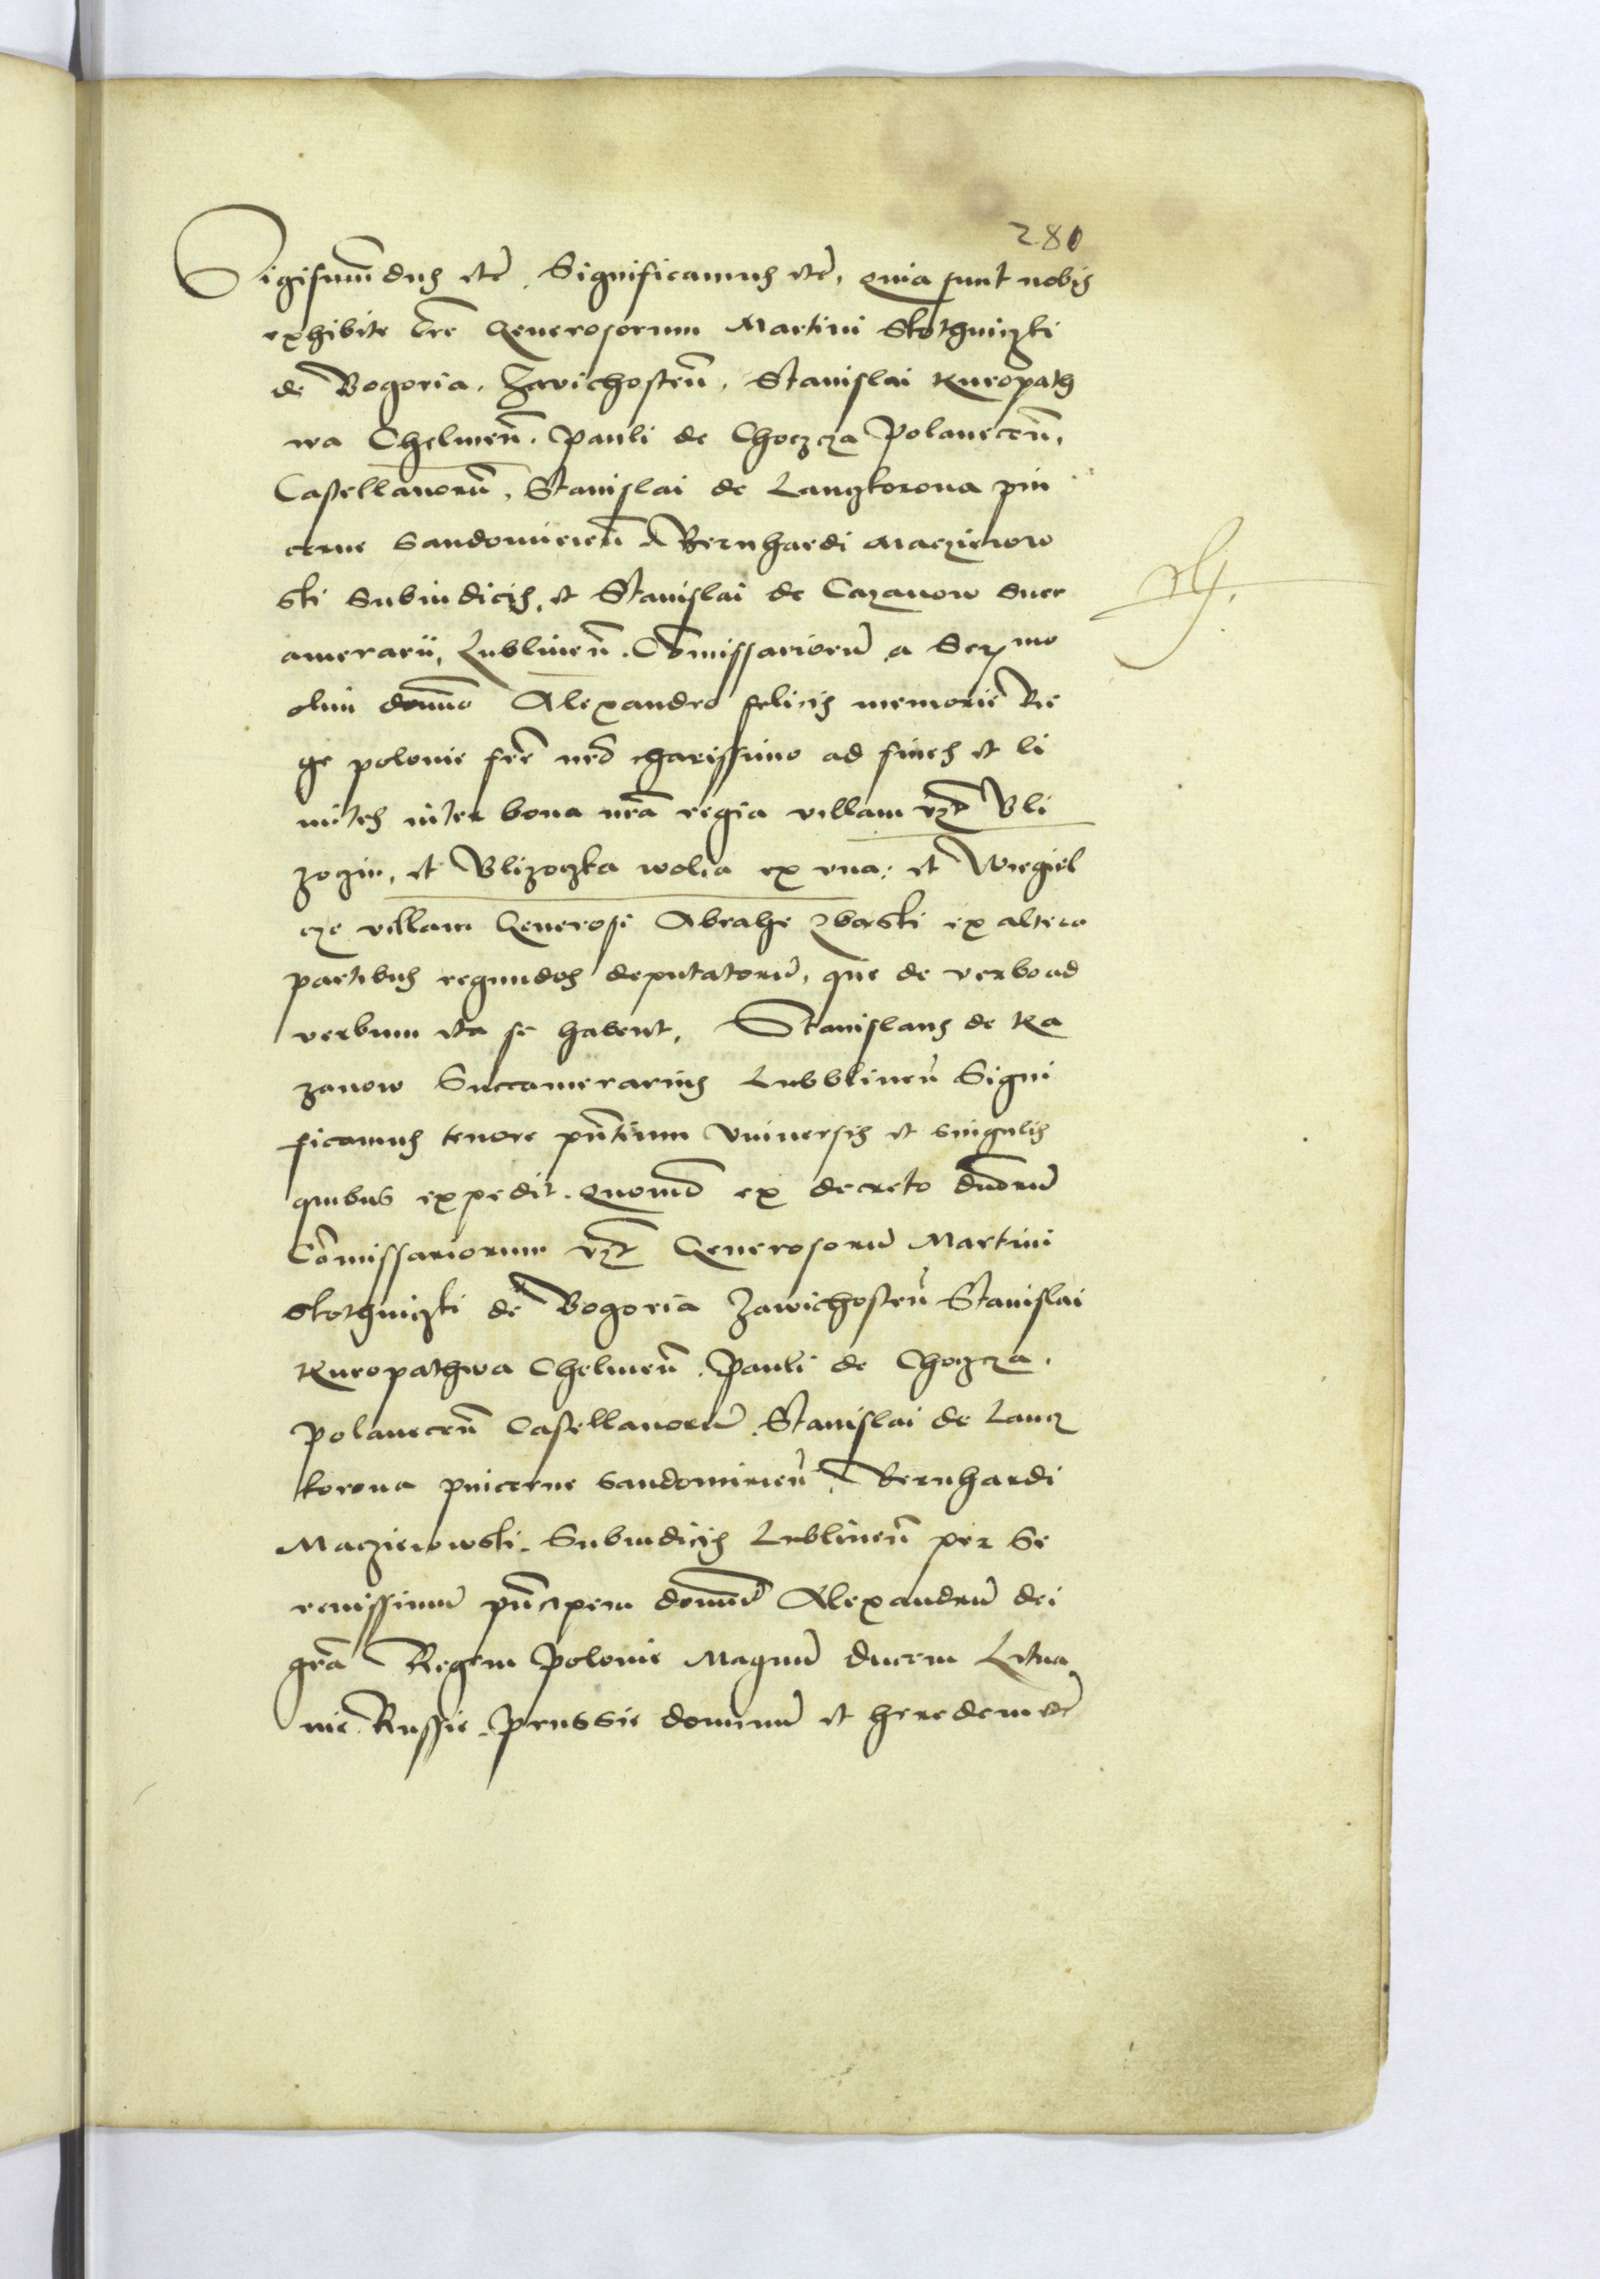 280
Sigismundus etc. Significamus etc. quia sunt nobis
exhibite lre Generosorum Martini Skothniczki
de Bogoria, Zavichosten, Stanislai Kuropath
wa Chelmen, Pauli de Choczcza Polanecen,
Castellanorum, Stanislai de Lanczkorona pin
cerne Sandomirien Bernhardi Macziewow
ski Subiudicis, et Stanislai de Cazanow succ
amerarii, Lublinen. Comissariorum a Sermo
olim domino Alexandro felicis memorie Re
ge polonie fre nro charissimo ad fines et li
mites inter bona nra regia villam vzt Bli
zoczin, et Blizoczka wolia ex una, et Wiegiel
cze villam Generosi Abrahe Zbarski ex altera
partibus regundos deputatorum, que de verbo ad
verbum ita se habent. Stanislaus de Ka
zanow Succamerarius Lubblinen Signi
ficamus tenore pntium Vniversis et singulis
quibus expedit. Quomo ex decreto dnorum
Comissariorum vzt Generosorum Martini
Skothniczki de Bogoria Zawichosten Stanislai
Kuropathwa Chelmen Pauli de Choczcza,
Polanecen Castellanorum Stanislai de Lancz
korona pincerne Sandomirien, Bernhardi
Macziewowski Subiudicis Lublinen per Se
renissimum pncipem dominum Alexandrum dei
gra Regem Polonie Magnum ducem Litua
nie Russie Prussie dominum et heredem etc